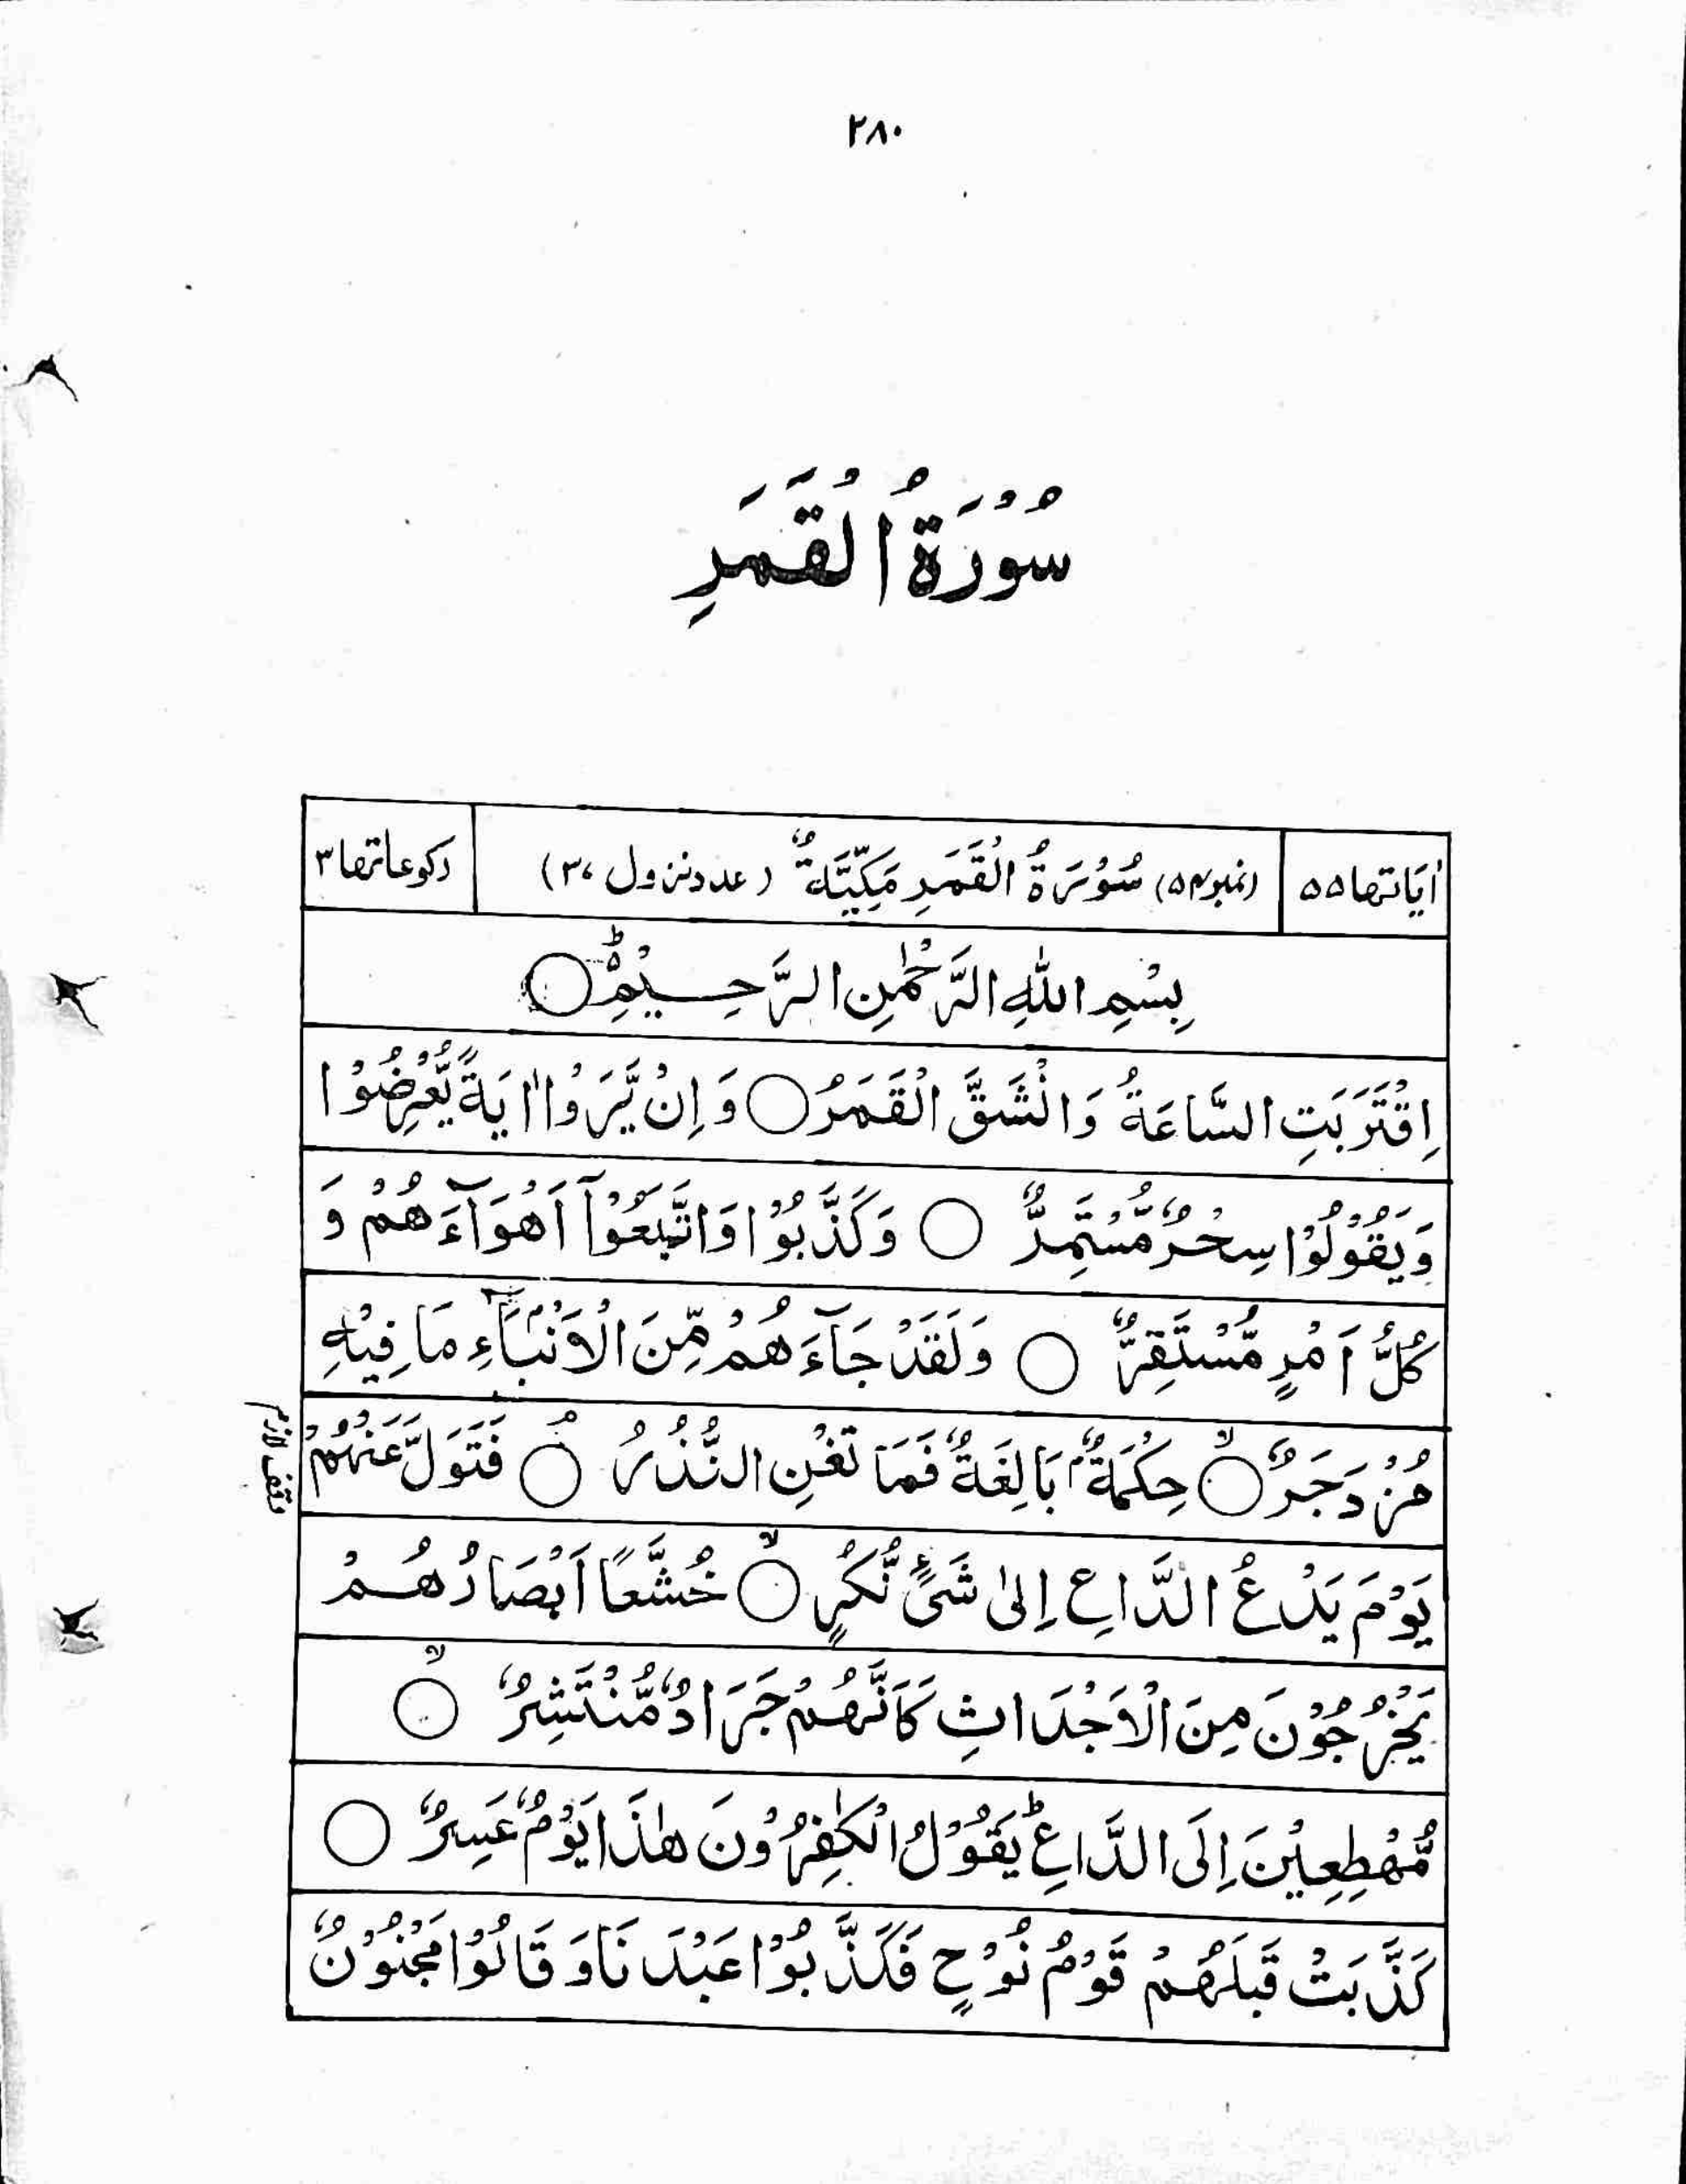 ۲۸۰
سُوْرَةُ الْقَمَرِ
اٰيَاتها ۵۵ (نمبر۵۴) سُوْرَةُ الْقَمَرِ مَكِّيَّةٌ (عددنزول ۳۷) ركوعاتها ۳
بِسْمِ اللّٰهِ الرَّحْمٰنِ الرَّحِــيْمِ ؕ○
اِقْتَرَبَتِ السَّاعَةُ وَانْشَقَّ الْقَمَرُ○ وَاِنْ يَّرَوْا اٰيَةً يُّعْرِضُوْا
وَيَقُوْلُوْا سِحْرٌ مُّسْتَمِرٌّ ○ وَكَذَّبُوْا وَاتَّبَعُوْٓا اَهْوَآءَهُمْ وَ
كُلُّ اَمْرٍ مُّسْتَقِرٌّ ○ وَلَقَدْ جَآءَهُمْ مِّنَ الْاَنْۢبَآءِ مَا فِيْهِ
مُزْدَجَرٌ ○ۙ حِكْمَةٌۢ بَالِغَةٌ فَمَا تُغْنِ النُّذُرُ ○ۙ فَتَوَلَّ عَنْهُمْ
وقف لازم
يَوْمَ يَدْعُ الدَّاعِ اِلٰى شَىْءٍ نُّكُرٍ ○ۙ خُشَّعًا اَبْصَارُهُــمْ
يَخْرُجُوْنَ مِنَ الْاَجْدَاثِ كَاَنَّهُمْ جَرَادٌ مُّنْتَشِرٌ ○ۙ
مُّهْطِعِيْنَ اِلَى الدَّاعِ ؕ يَقُوْلُ الْكٰفِرُوْنَ هٰذَا يَوْمٌ عَسِرٌ ○
كَذَّبَتْ قَبْلَهُمْ قَوْمُ نُوْحٍ فَكَذَّبُوْا عَبْدَنَا وَقَالُوْا مَجْنُوْنٌ